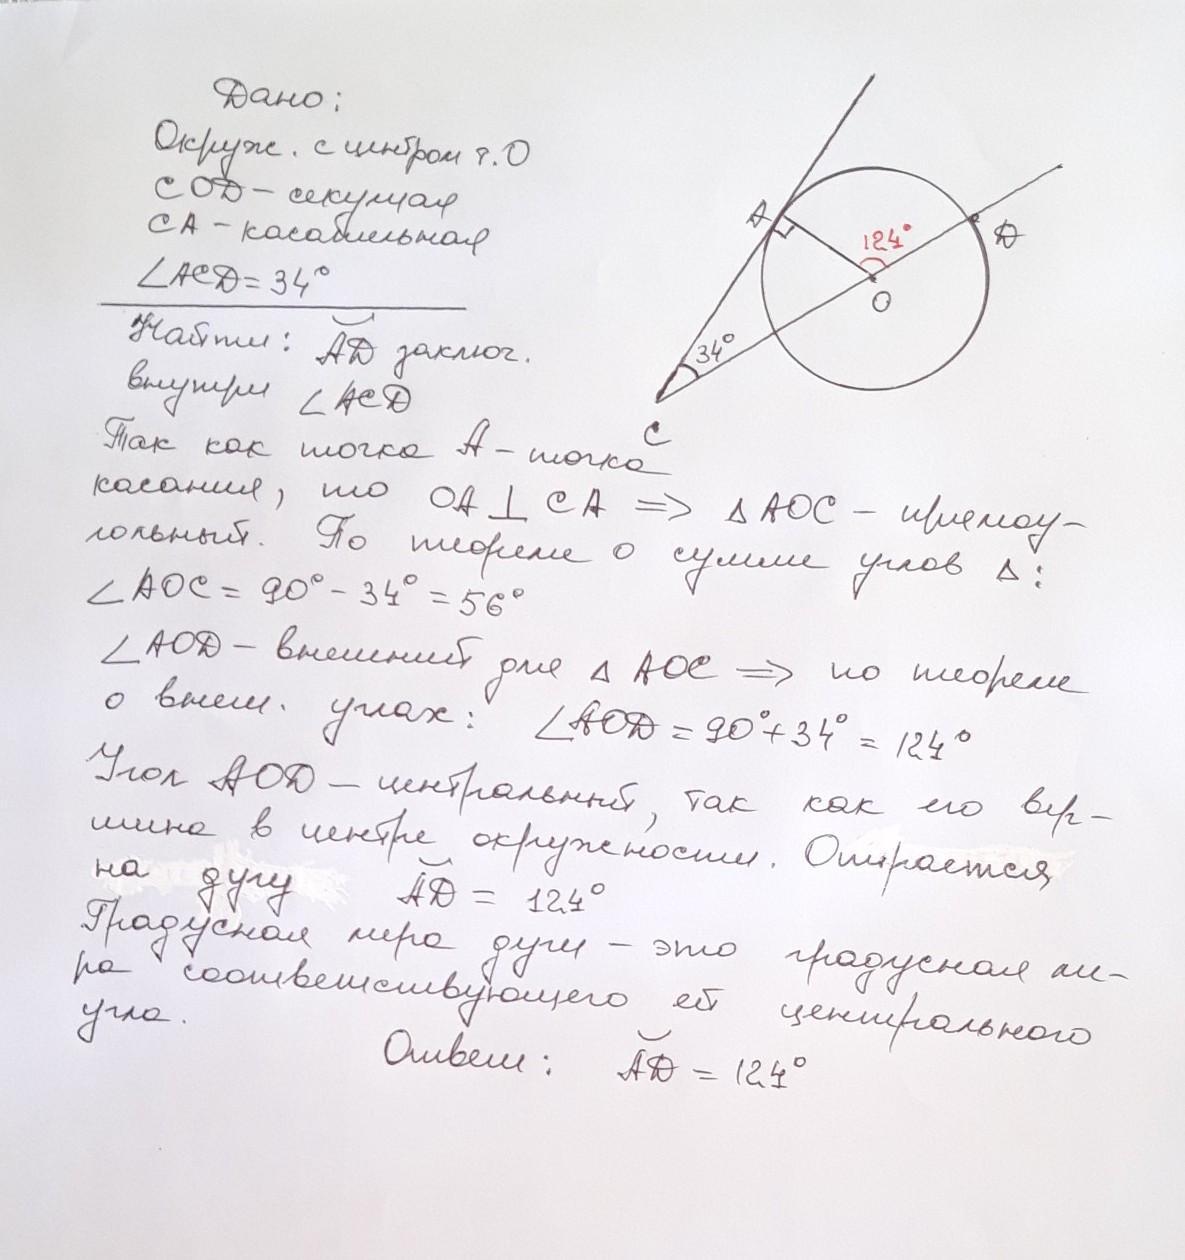 Дано:
Окруж. с центром т.О
COD - секущая
CA - касательная
∠ACD = 34°
Найти: ◡AD заключ.
внутри ∠ACD
A
124°
D
O
34°
C
Так как точка А - точка
касания, то OA ⊥ CA => △AOC - прямоу-
гольный. По теореме о сумме углов △:
∠AOC = 90° - 34° = 56°
∠AOD - внешний для △ AOC => по теореме
о внеш. углах: ∠AOD = 90° + 34° = 124°
Угол AOD - центральный, так как его вер-
шина в центре окружности. Опирается
на дугу ◡AD = 124°
Градусная мера дуги - это градусная ме-
ра соответствующего ей центрального
угла.
Ответ: ◡AD = 124°